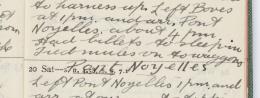 to harness up. Left Boves
at 1pm, and arr. Pont
Noyelles, about 4 pm.
Had billets to sleep in
Feed mules on to waggons
20 Sat— Pont Noyelles
Left Pont Noyelles 1pm and